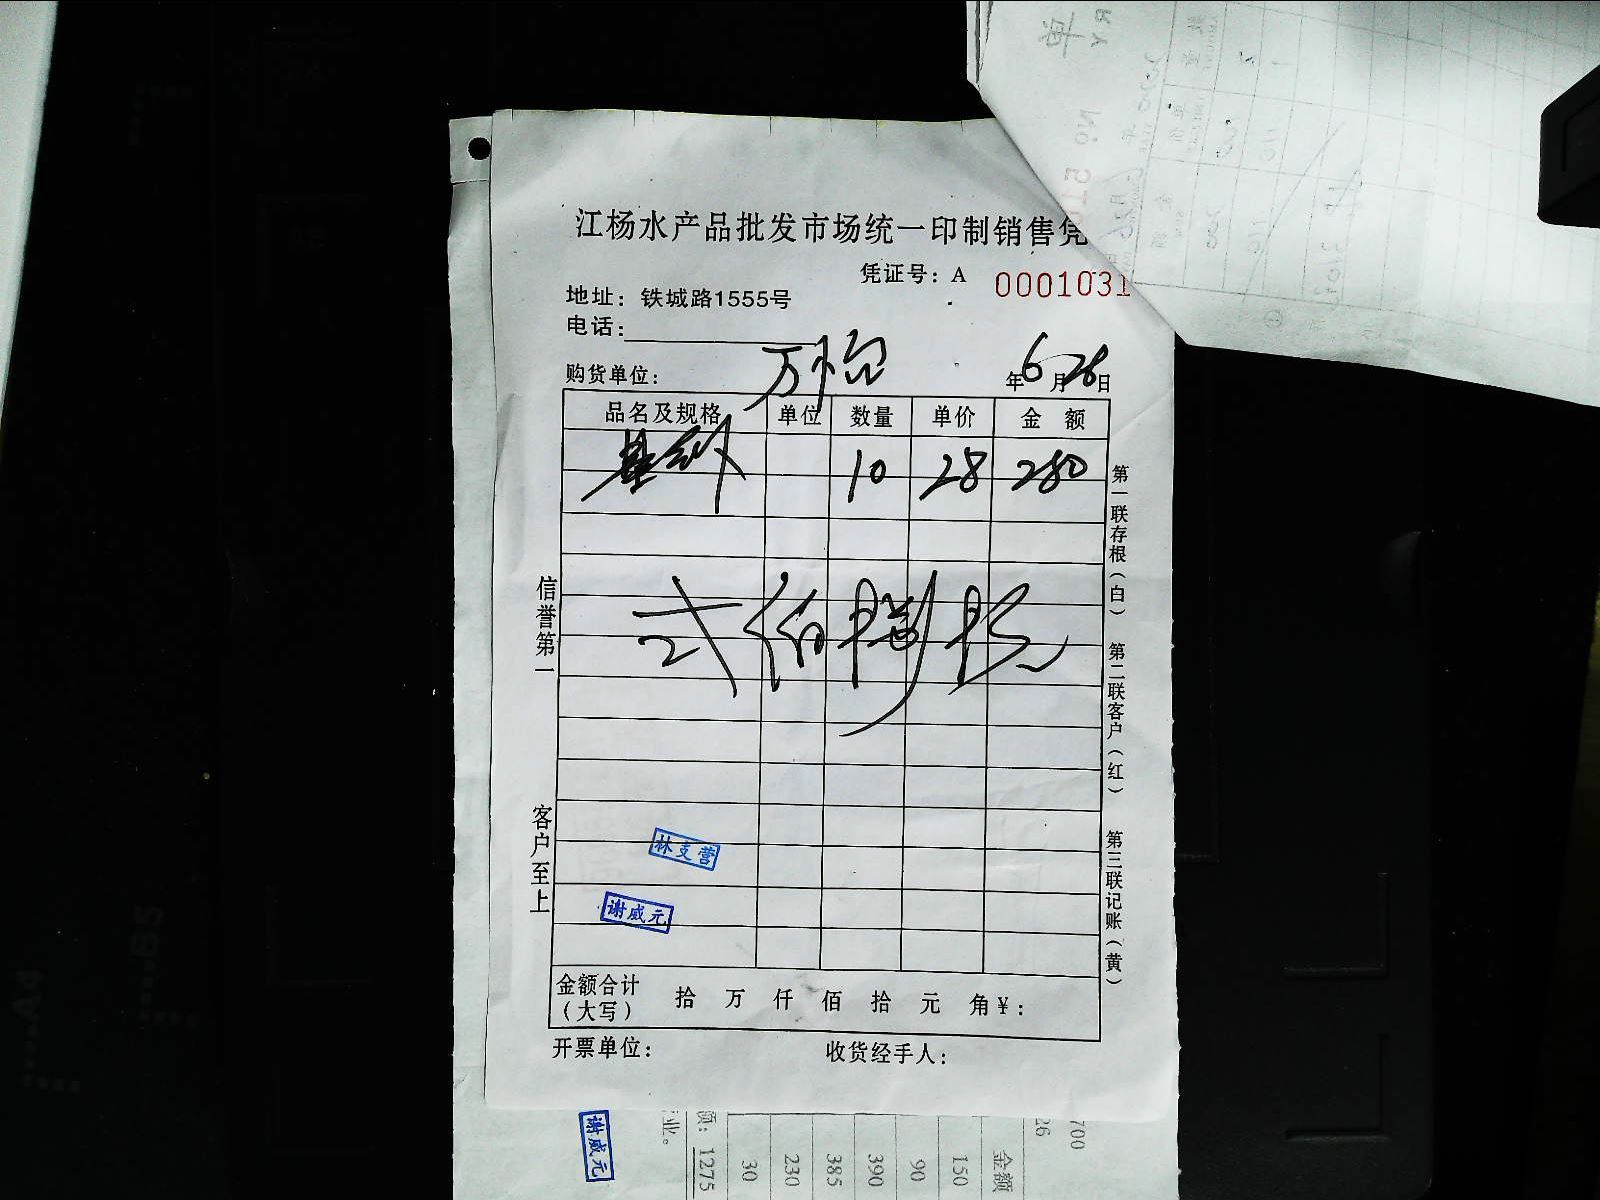 江杨水产品批发市场统一印制销售凭
凭证号：A 0001031
地址：铁城路1555号
电话：
购货单位： 年6月26日
品名及规格 单位 数量 单价 金额
10 28 280
弍佰捌拾
信誉第一
客户至上
第一联存根（白）
第二联客户（红）
第三联记账（黄）
林支营
谢威元
金额合计（大写） 拾 万 仟 佰 拾 元 角 ¥：
开票单位： 收货经手人：
谢威元
业。
额：1275
30
230
385
390
90
150
金额
26
700